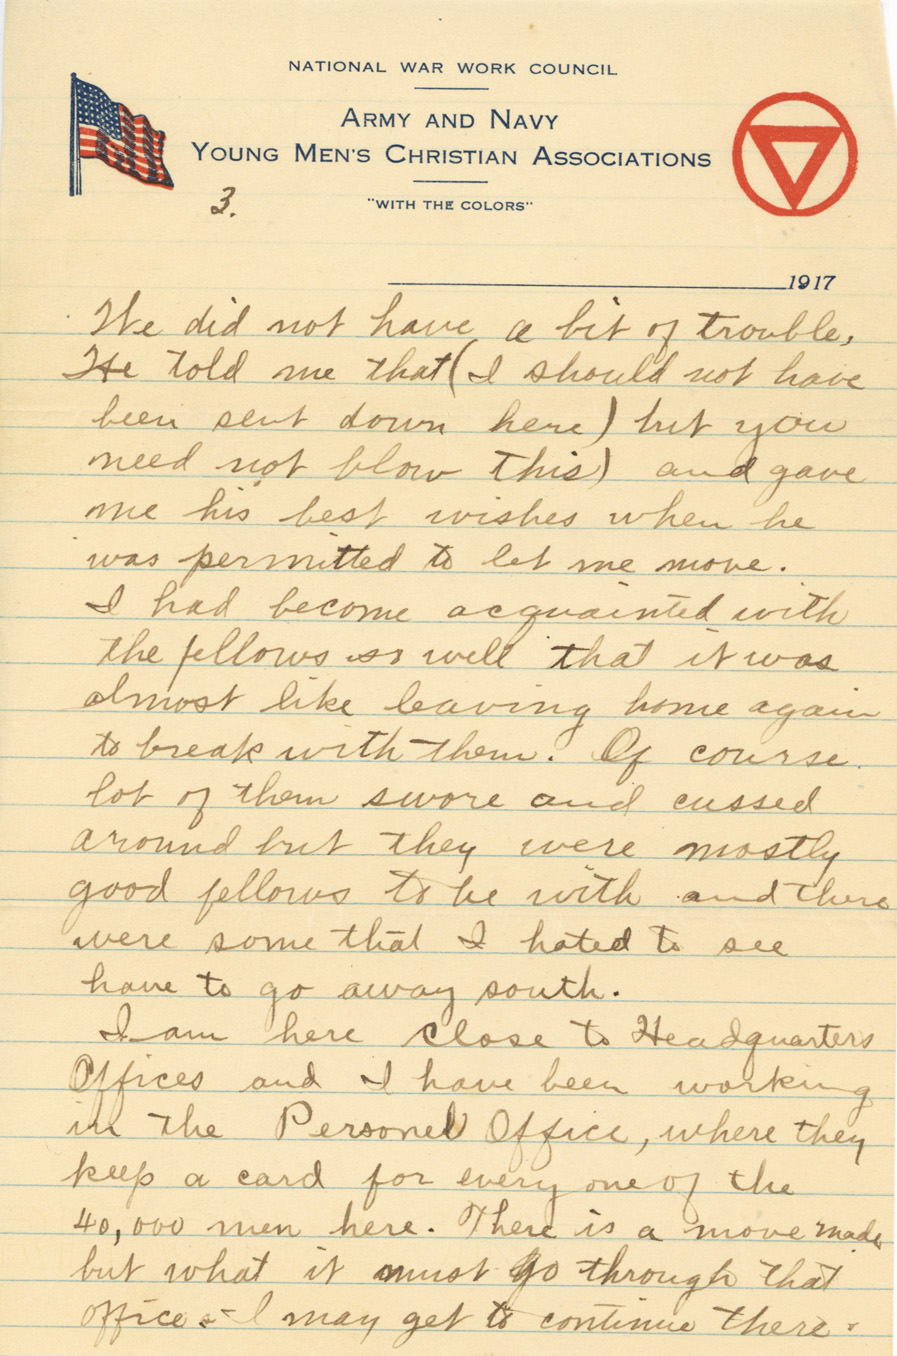 NATIONAL WAR WORK COUNCIL
ARMY AND NAVY
YOUNG MEN'S CHRISTIAN ASSOCIATIONS
"WITH THE COLORS"
3.
1917
We did not have a bit of trouble,
He told me that (I should not have
been sent down here) but you
need not blow this) and gave
me his best wishes when he
was permitted to let me move.
I had become acquainted with
the fellows so well that it was
almost like leaving home again
to break with them. Of course
lot of them swore and cussed
around but they were mostly
good fellows to be with and there
were some that I hated to see
have to go away south.
I am here close to Headquarters
Offices and I have been working
in the Personel Office, where they
keep a card for every one of the
40,000 men here. There is a move made
but what it must go through that
office. - I may get to continue there.